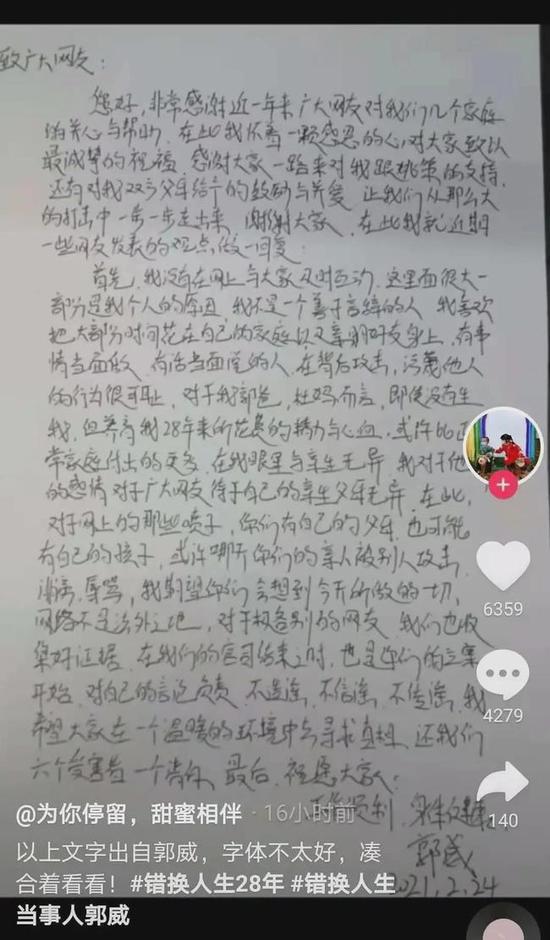 致广大网友：
您好，非常感谢近一年来广大网友对我们几个家庭
的关心与帮助，在此我怀着一颗感恩的心，对大家致以
最诚挚的祝福，感谢大家一路来对我跟姚策的支持，
还有对我双方父母给予的鼓励与关爱，让我们从那么大
的打击中一步一步走出来，谢谢大家，在此我就近期
一些网友发表的观点做一回复：
首先，我没有在网上与大家及时互动，这里面很大一
部分是我个人的原因，我不是一个善于言辞的人，我喜欢
把大部分时间花在自己的家庭以及亲朋好友身上，有事
情当面做，有话当面说的人，在背后攻击，污蔑他人
的行为很可耻，对于我郭爸，杜妈而言，即使没有生
我，但养育我28年来所花费的精力与心血，或许比正
常家庭付出的更多，在我眼里与亲生无异，我对于他
的感情对于广大网友待于自己的亲生父母无异，在此，
对于网上的那些喷子，你们有自己的父母，也可能
有自己的孩子，或许哪天你们的亲人被别人攻击，
辱骂，我期望你们会想到今天所做的一切，
网络不是法外之地，对于极各别的网友，我们也收
集好证据，在我们的官司结束之时，也是你们的立案
开始，对自己的言论负责，不造谣，不信谣，不传谣，我
希望大家在一个温暖的环境中去寻求真相，还我们
六个受害者一个清白，最后，祝愿大家：
顺利，身体健康
郭威
2021.2.24
6359
4279
140
@为你停留，甜蜜相伴 · 16小时前
以上文字出自郭威，字体不太好，凑
合着看看！#错换人生28年 #错换人生
当事人郭威